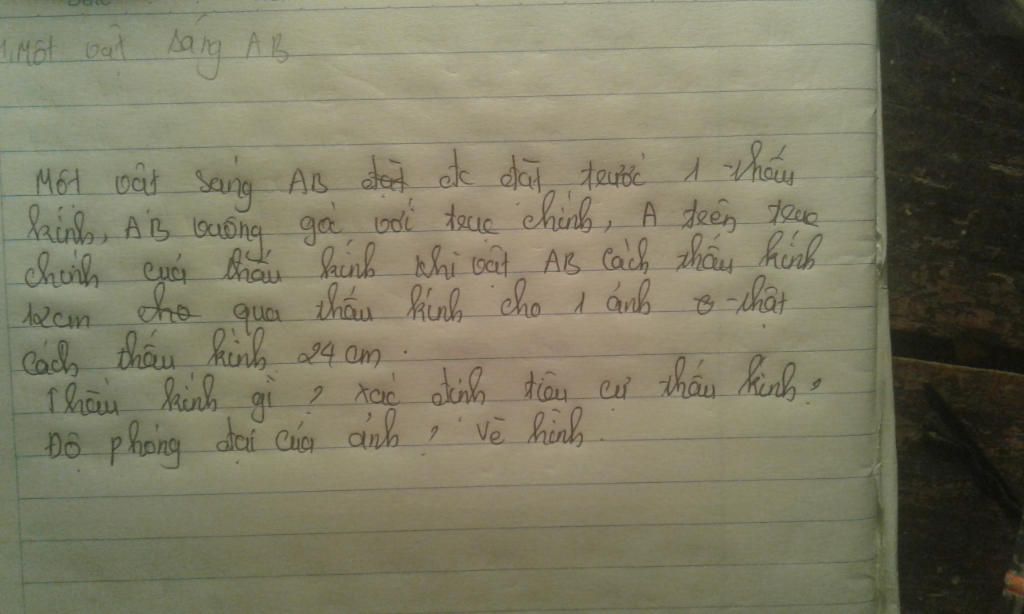 1, Một vật sáng AB
Một vật sáng AB đặt đc đặt trước 1 thấu
kính, AB vuông góc với trục chính, A trên trục
chính của thấu kính khi vật AB cách thấu kính
12cm cho qua thấu kính cho 1 ảnh thật
cách thấu kính 24 cm.
Thấu kính gì? xác định tiêu cự thấu kính?
Độ phóng đại của ảnh? Vẽ hình.